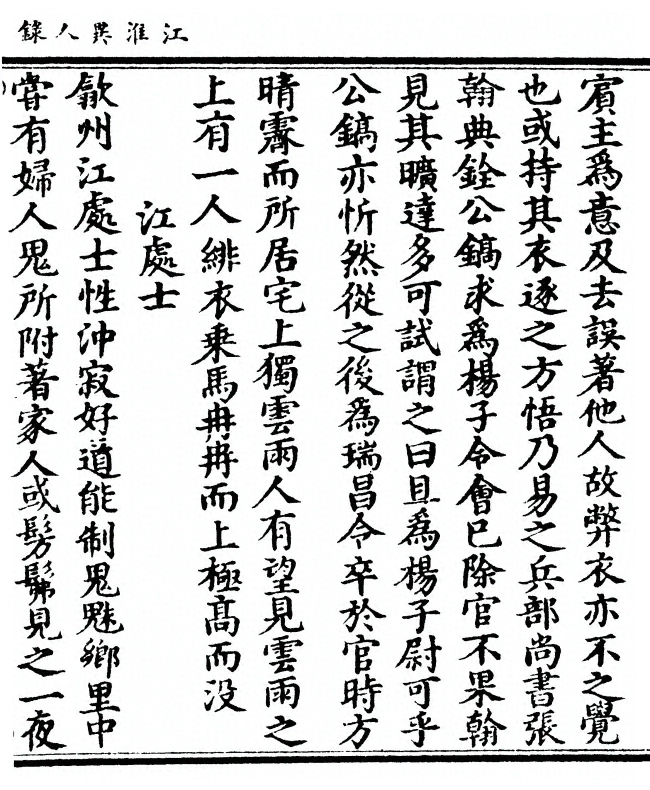 江淮異人錄
賔主爲意及去誤著他人故弊衣亦不之覺
也或持其衣逐之方悟乃易之兵部尚書張
翰典銓公鎬求爲楊子令會已除官不果翰
見其曠達多可試謂之曰且爲楊子尉可乎
公鎬亦忻然從之後爲瑞昌令卒於官時方
晴霽而所居宅上獨雲雨人有望見雲雨之
上有一人緋衣乗馬冉冉而上極髙而没
江處士
歙州江處士性沖寂好道能制鬼魅鄉里中
嘗有婦人鬼所附著家人或髣髴見之一夜